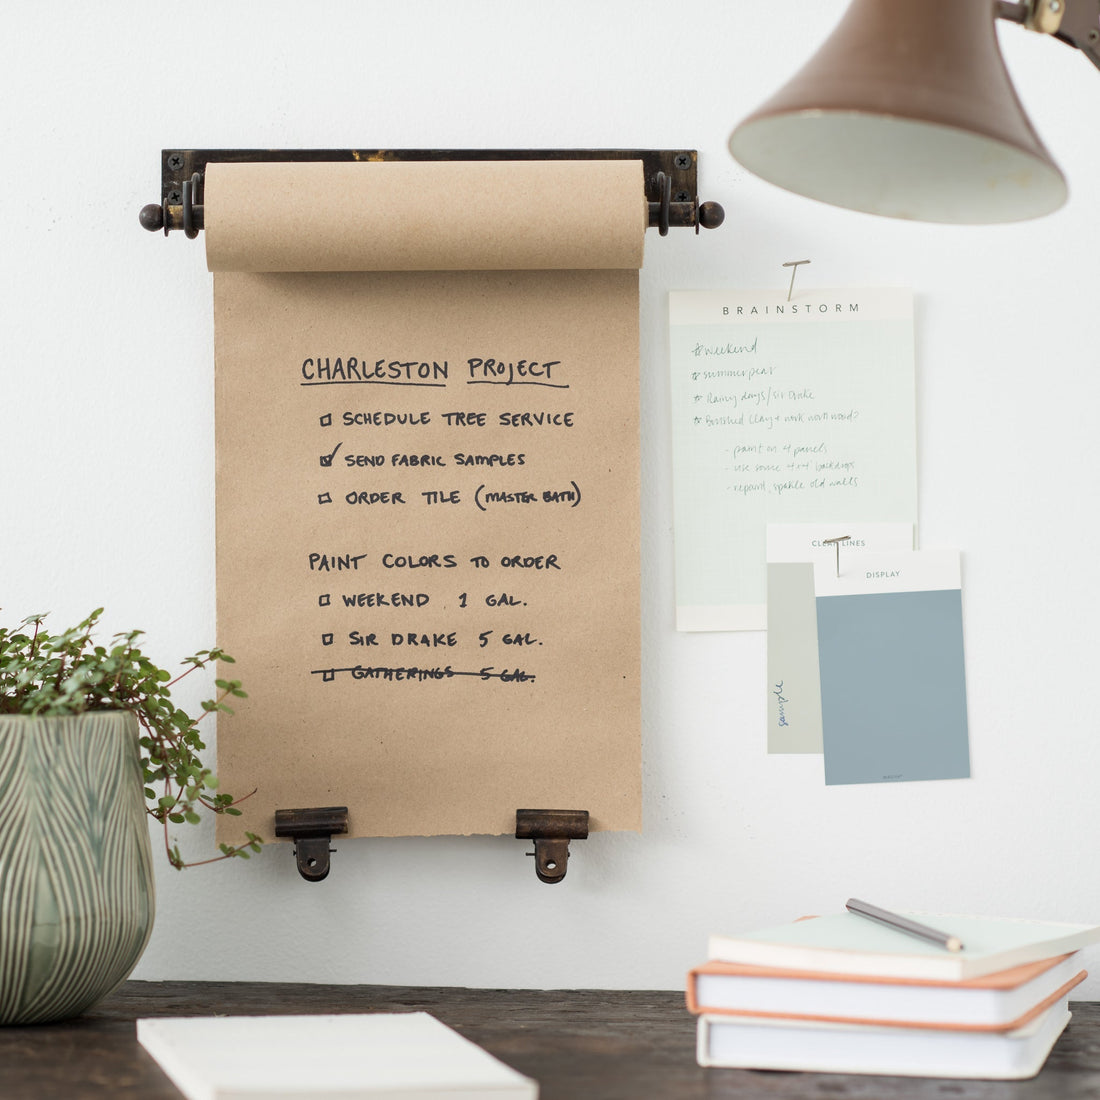 CHARLESTON PROJECT
SCHEDULE TREE SERVICE
SEND FABRIC SAMPLES
ORDER TILE (MASTER BATH)
PAINT COLORS TO ORDER
WEEKEND 1 GAL.
SIR DRAKE 5 GAL.
GATHERINGS 5 GAL.
BRAINSTORM
#weekend
#summerpear
# Rainy days/sir Drake
# Burished Clay + work
- paint on 4 panels
- use some 4x4' backdrops
- repaint, spakle old walls
CLEAN LINES
DISPLAY
sample